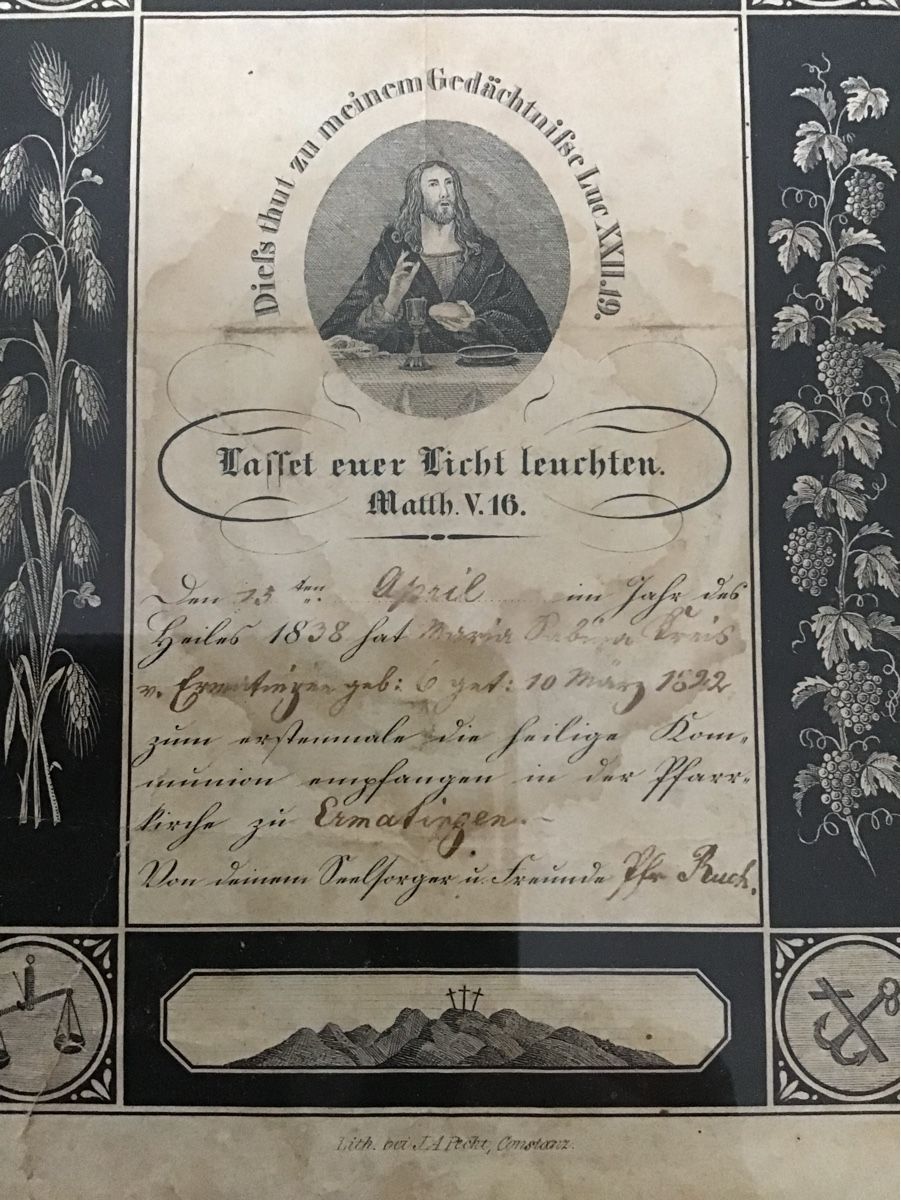 Dieſs thut zu meinem Gedächtniſse Luc XXII. 19.
Laſſet euer Licht leuchten.
Matth. V. 16.
Den 15ten April im Jahr des
Heiles 1838 hat Maria Sabina
v. Ermatingen geb: get: 10 März 1822
zum erstenmale die heilige Kom-
munion empfangen in der Pfarr-
kirche zu Ermatingen.
Von deinem Seelsorger u. Freunde Pfr Ruch.
Lith. bei J. A Pecht, Constanz.